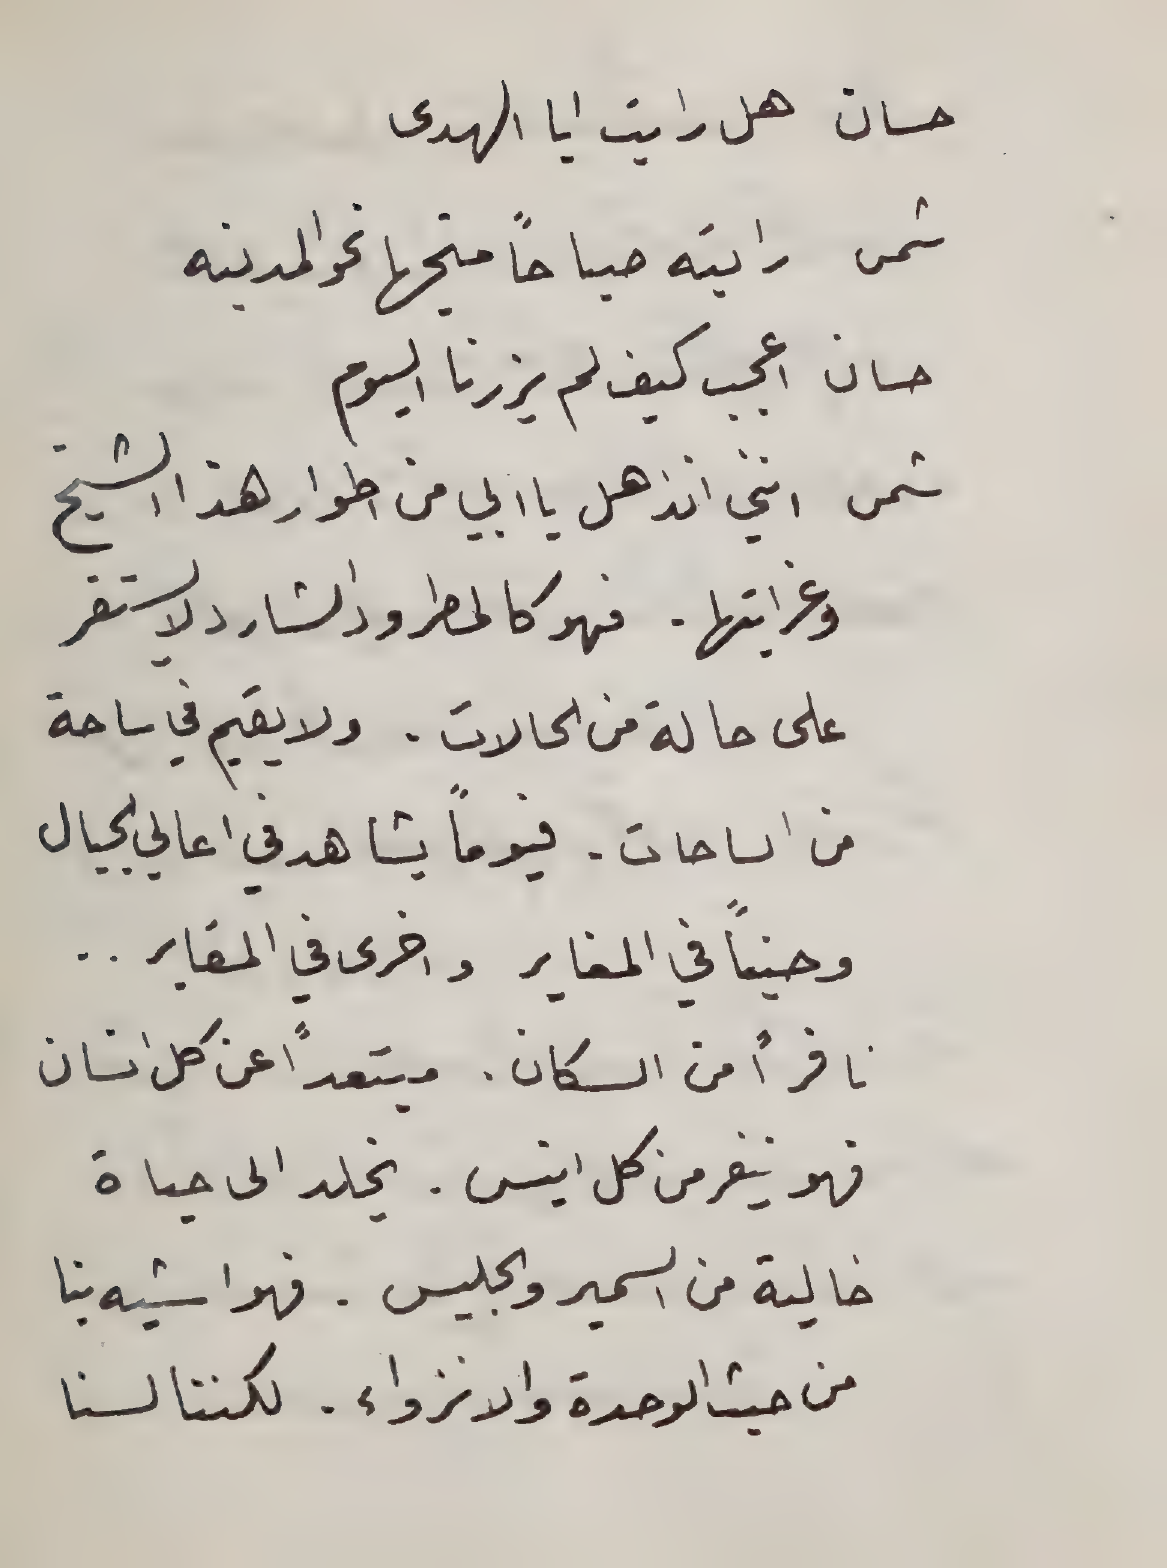 حسان هل رايت ابا الهدى
شمس رايته صباحاً متجها نحو المدينه
حسان اعجب كيف لم يزرنا اليوم
شمس انني انذهل يا ابي من اطوار هذا الشيخ
وغرابتها . فهو كالمطرود الشارد لا يستقر
على حالة من الحالات . ولا يقيم في ساحة
من الساحات . فيوماً يشاهد في اعالي الجبال
وحيناً في المغاير واخرى في المقابر ..
نافراً من السكان . مبتعداً عن كل انسان
فهو ينفر من كل انيس . يخلد الى حياة
خالية من السمير والجليس . فهو اشبه بنا
من حيث الوحدة والانزواء . لكننا لسنا